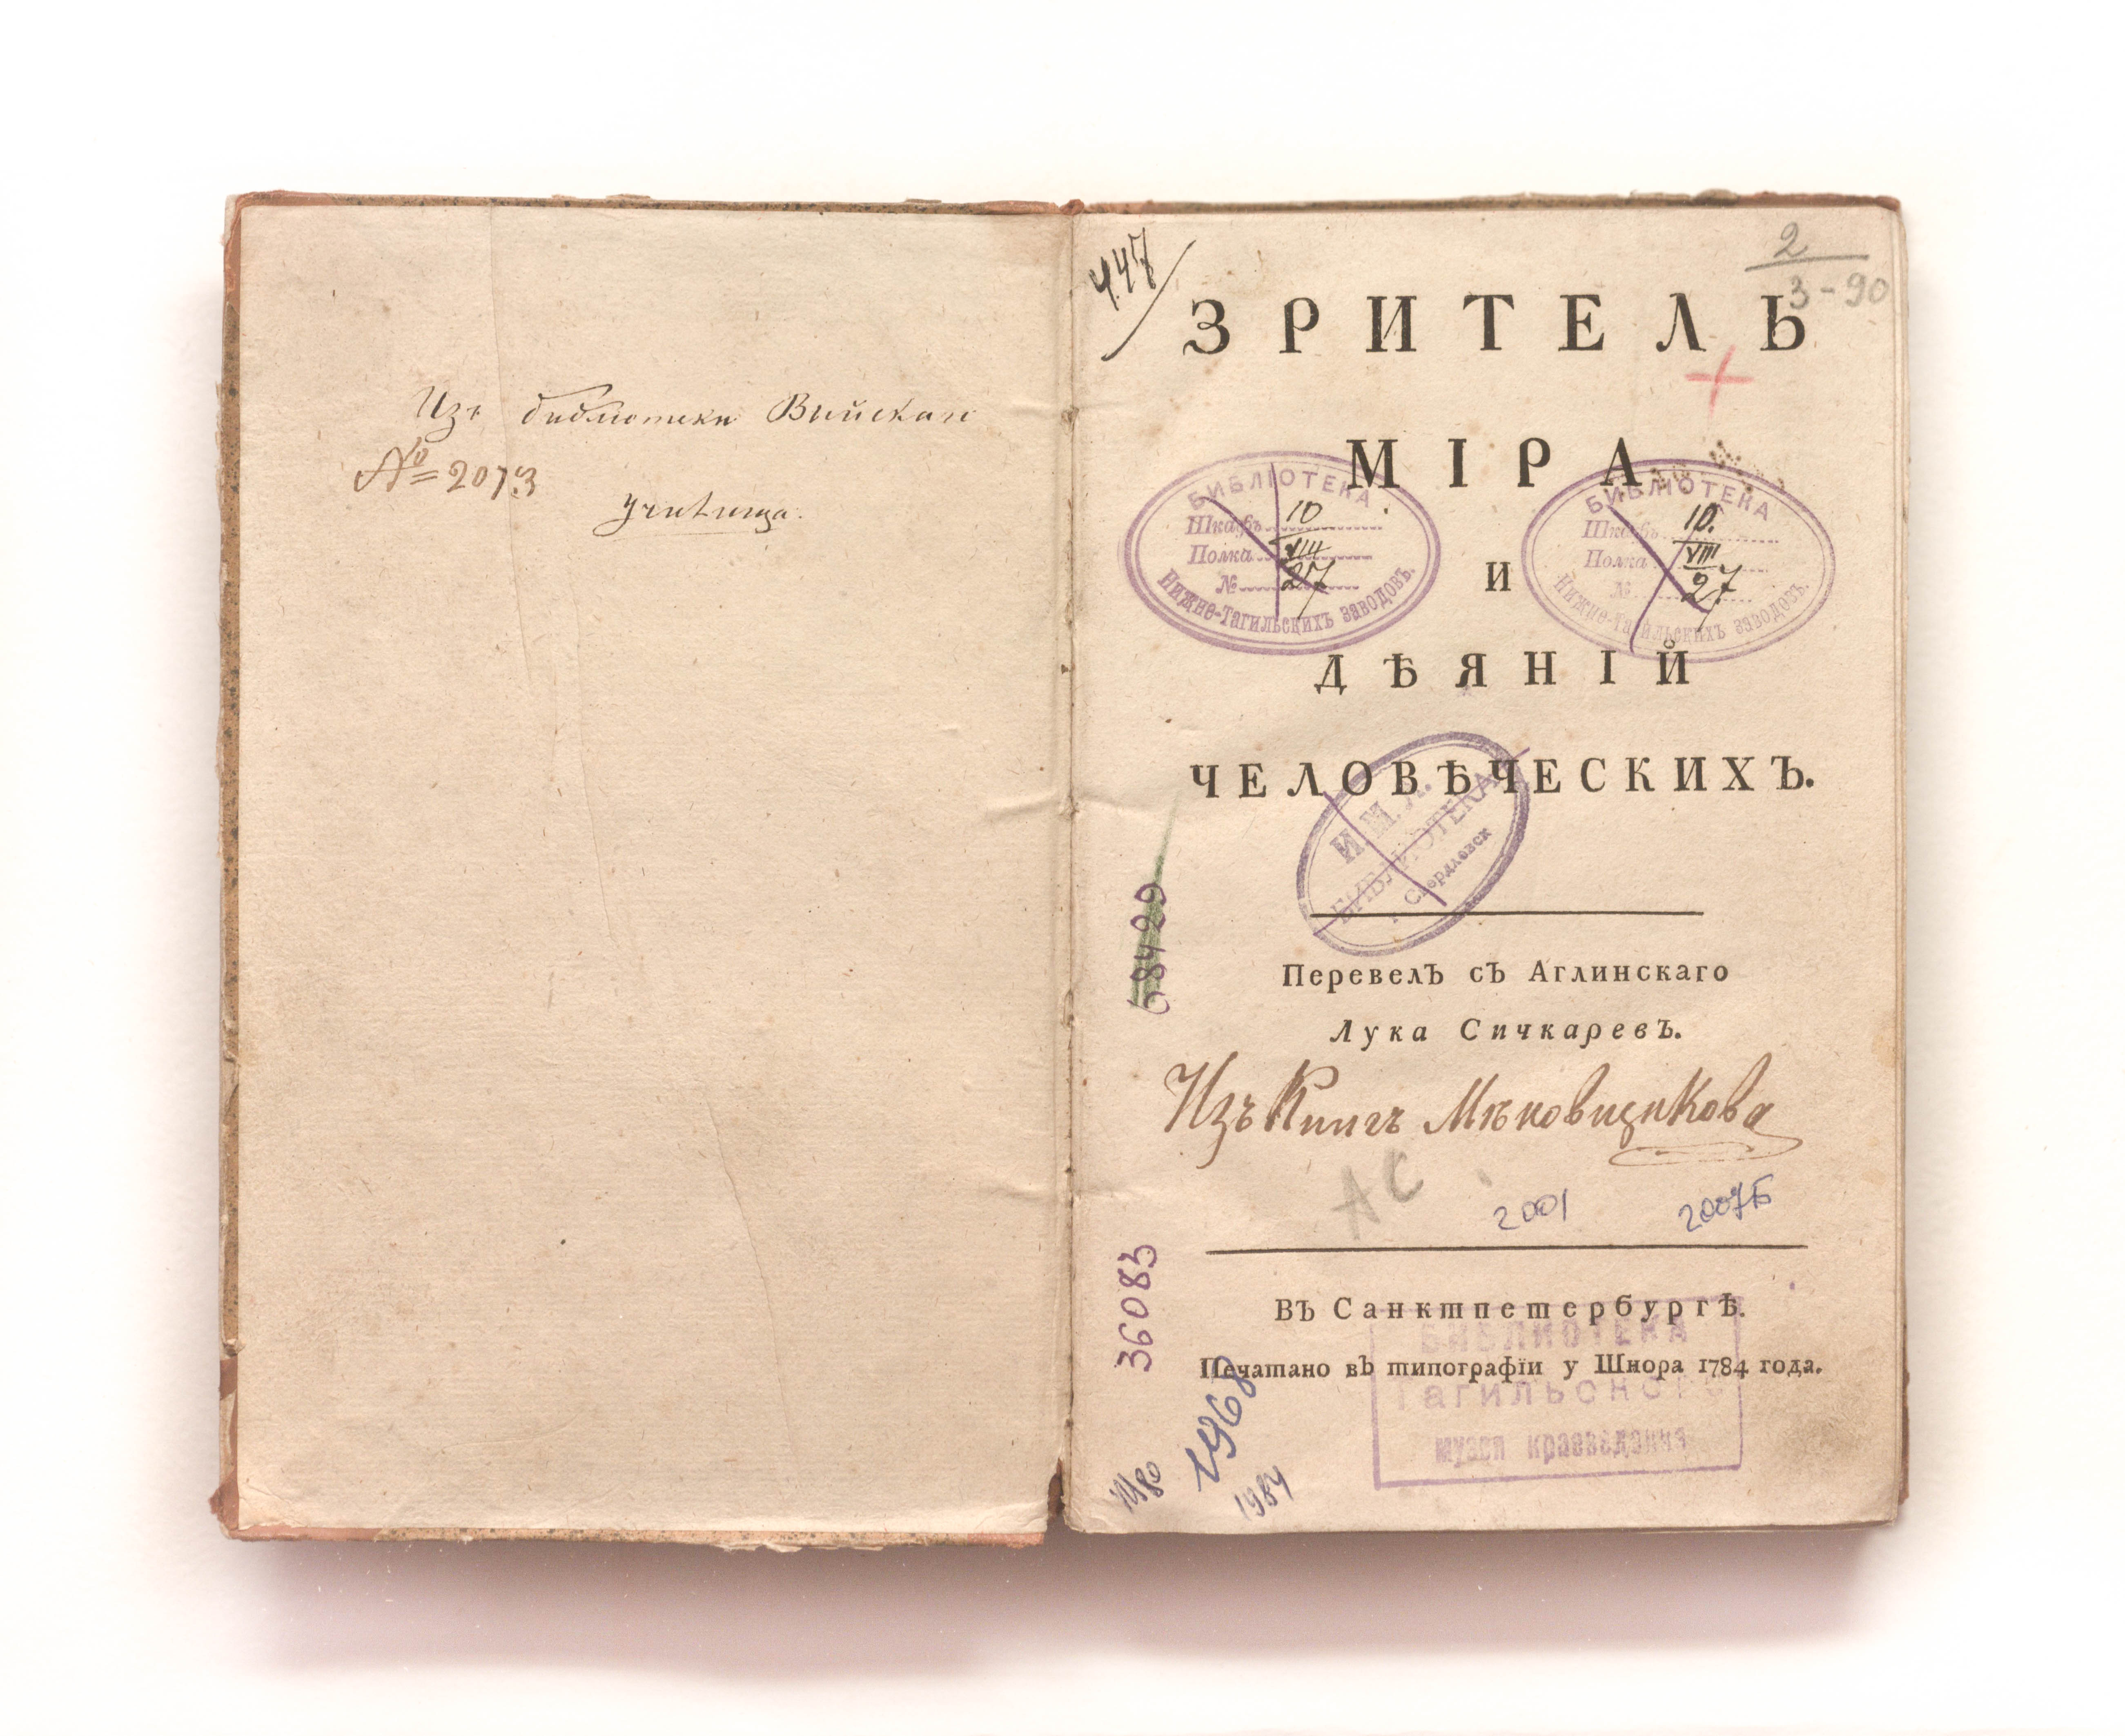 Изъ библіотеки Выйскаго
№ 2073
училища.
447
2
3-90
ЗРИТЕЛЬ
МІРА
И
ДѢЯНІЙ
ЧЕЛОВѢЧЕСКИХЪ.
БИБЛІОТЕКА
Шкафъ 10
Полка VIII
№ 27
Нижне-Тагильскихъ заводовъ.
БИБЛІОТЕКА
Шкафъ 10.
Полка VIII
№ 27
Нижне-Тагильскихъ заводовъ.
БИБЛИОТЕКА
г. Свердловск
68429
Перевелъ съ Аглинскаго
Лука Сичкаревъ.
Изъ Книгъ Мѣновщикова
АС
2001 2007Б
36083
Въ Санктпетербургѣ.
Печатано въ типографїи у Шнора 1784 года.
БИБЛИОТЕКА
Тагильского
музея краеведения
1968
1984